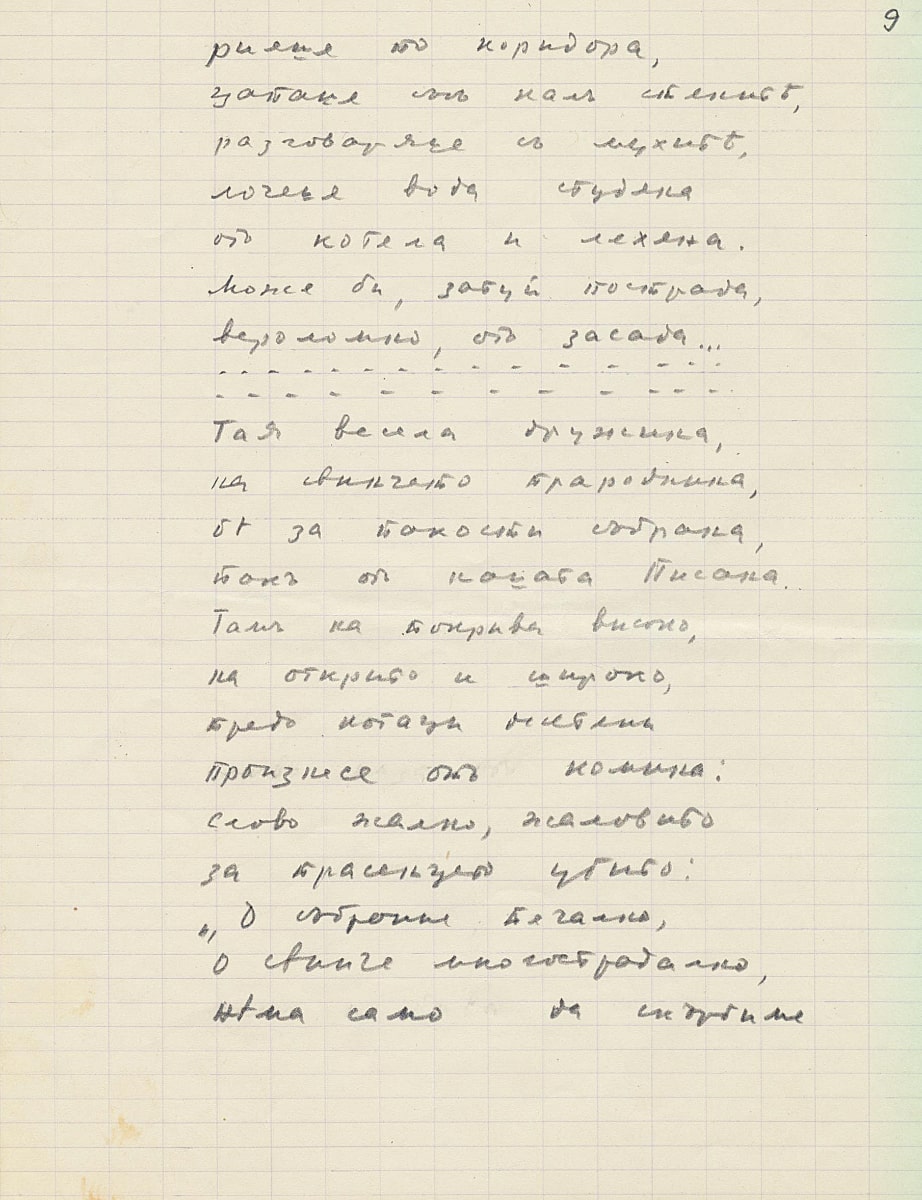 9
риеше по коридора,
цапаше съ калъ стенитѣ,
разговаряше съ мухитѣ,
лочеше вода студена
отъ котела и легена.
Може би, затуй пострада,
вероломно, отъ засада...
Тая весела дружина,
на свинчето прароднина,
бѣ за пакости събрана,
пакъ отъ кошата Писана.
Тамъ на покрива високо,
на открито и широко,
предъ котаци
произнесе отъ комина:
слово жално, жаловито
за прасенцето убито:
„О събрание печално,
О свинче многострадално,
нѣма само да скърбиме